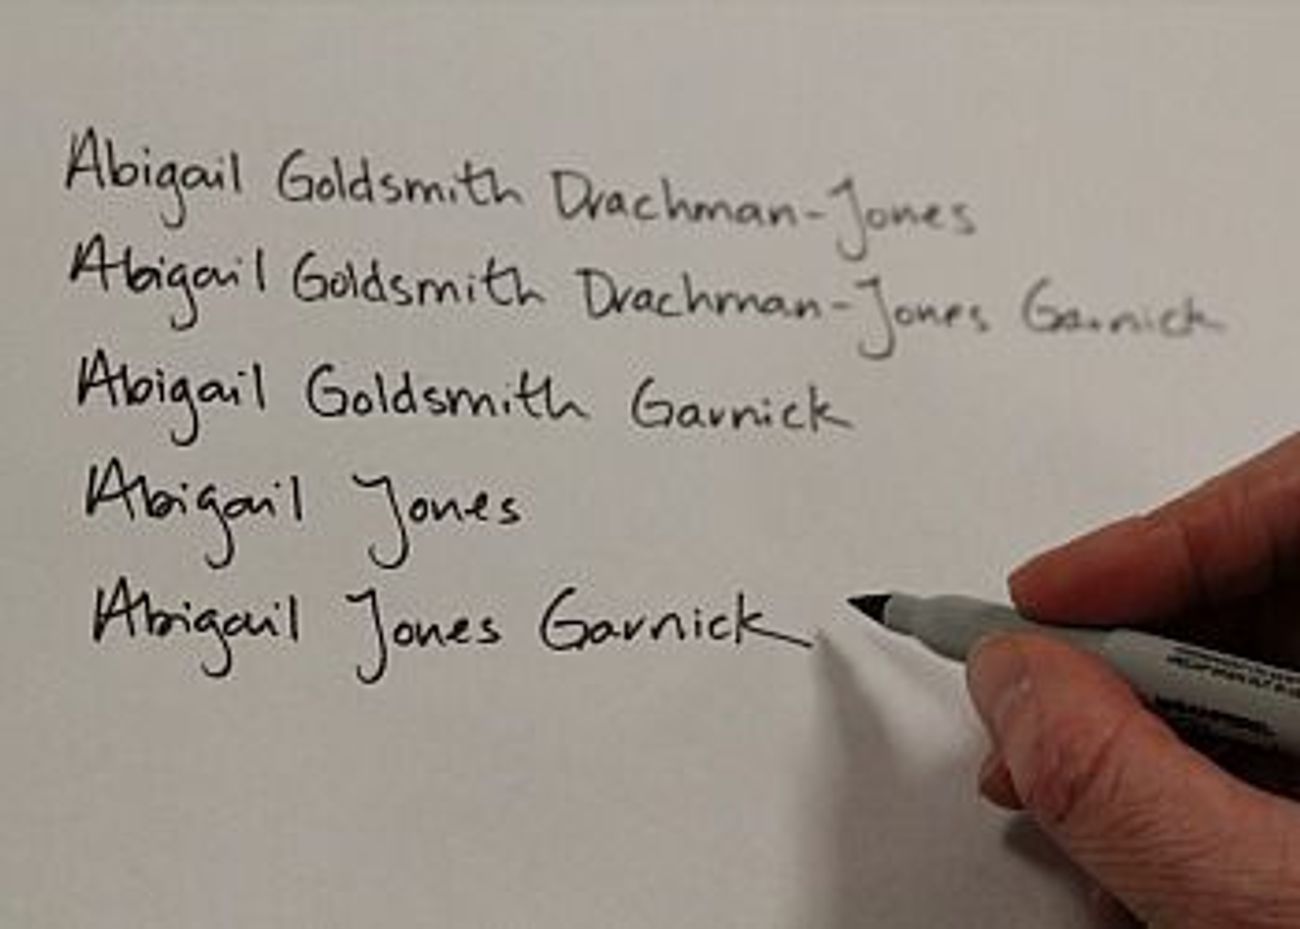 Abigail Goldsmith Drachman-Jones
Abigail Goldsmith Drachman-Jones Garnick
Abigail Goldsmith Garnick
Abigail Jones
Abigail Jones Garnick